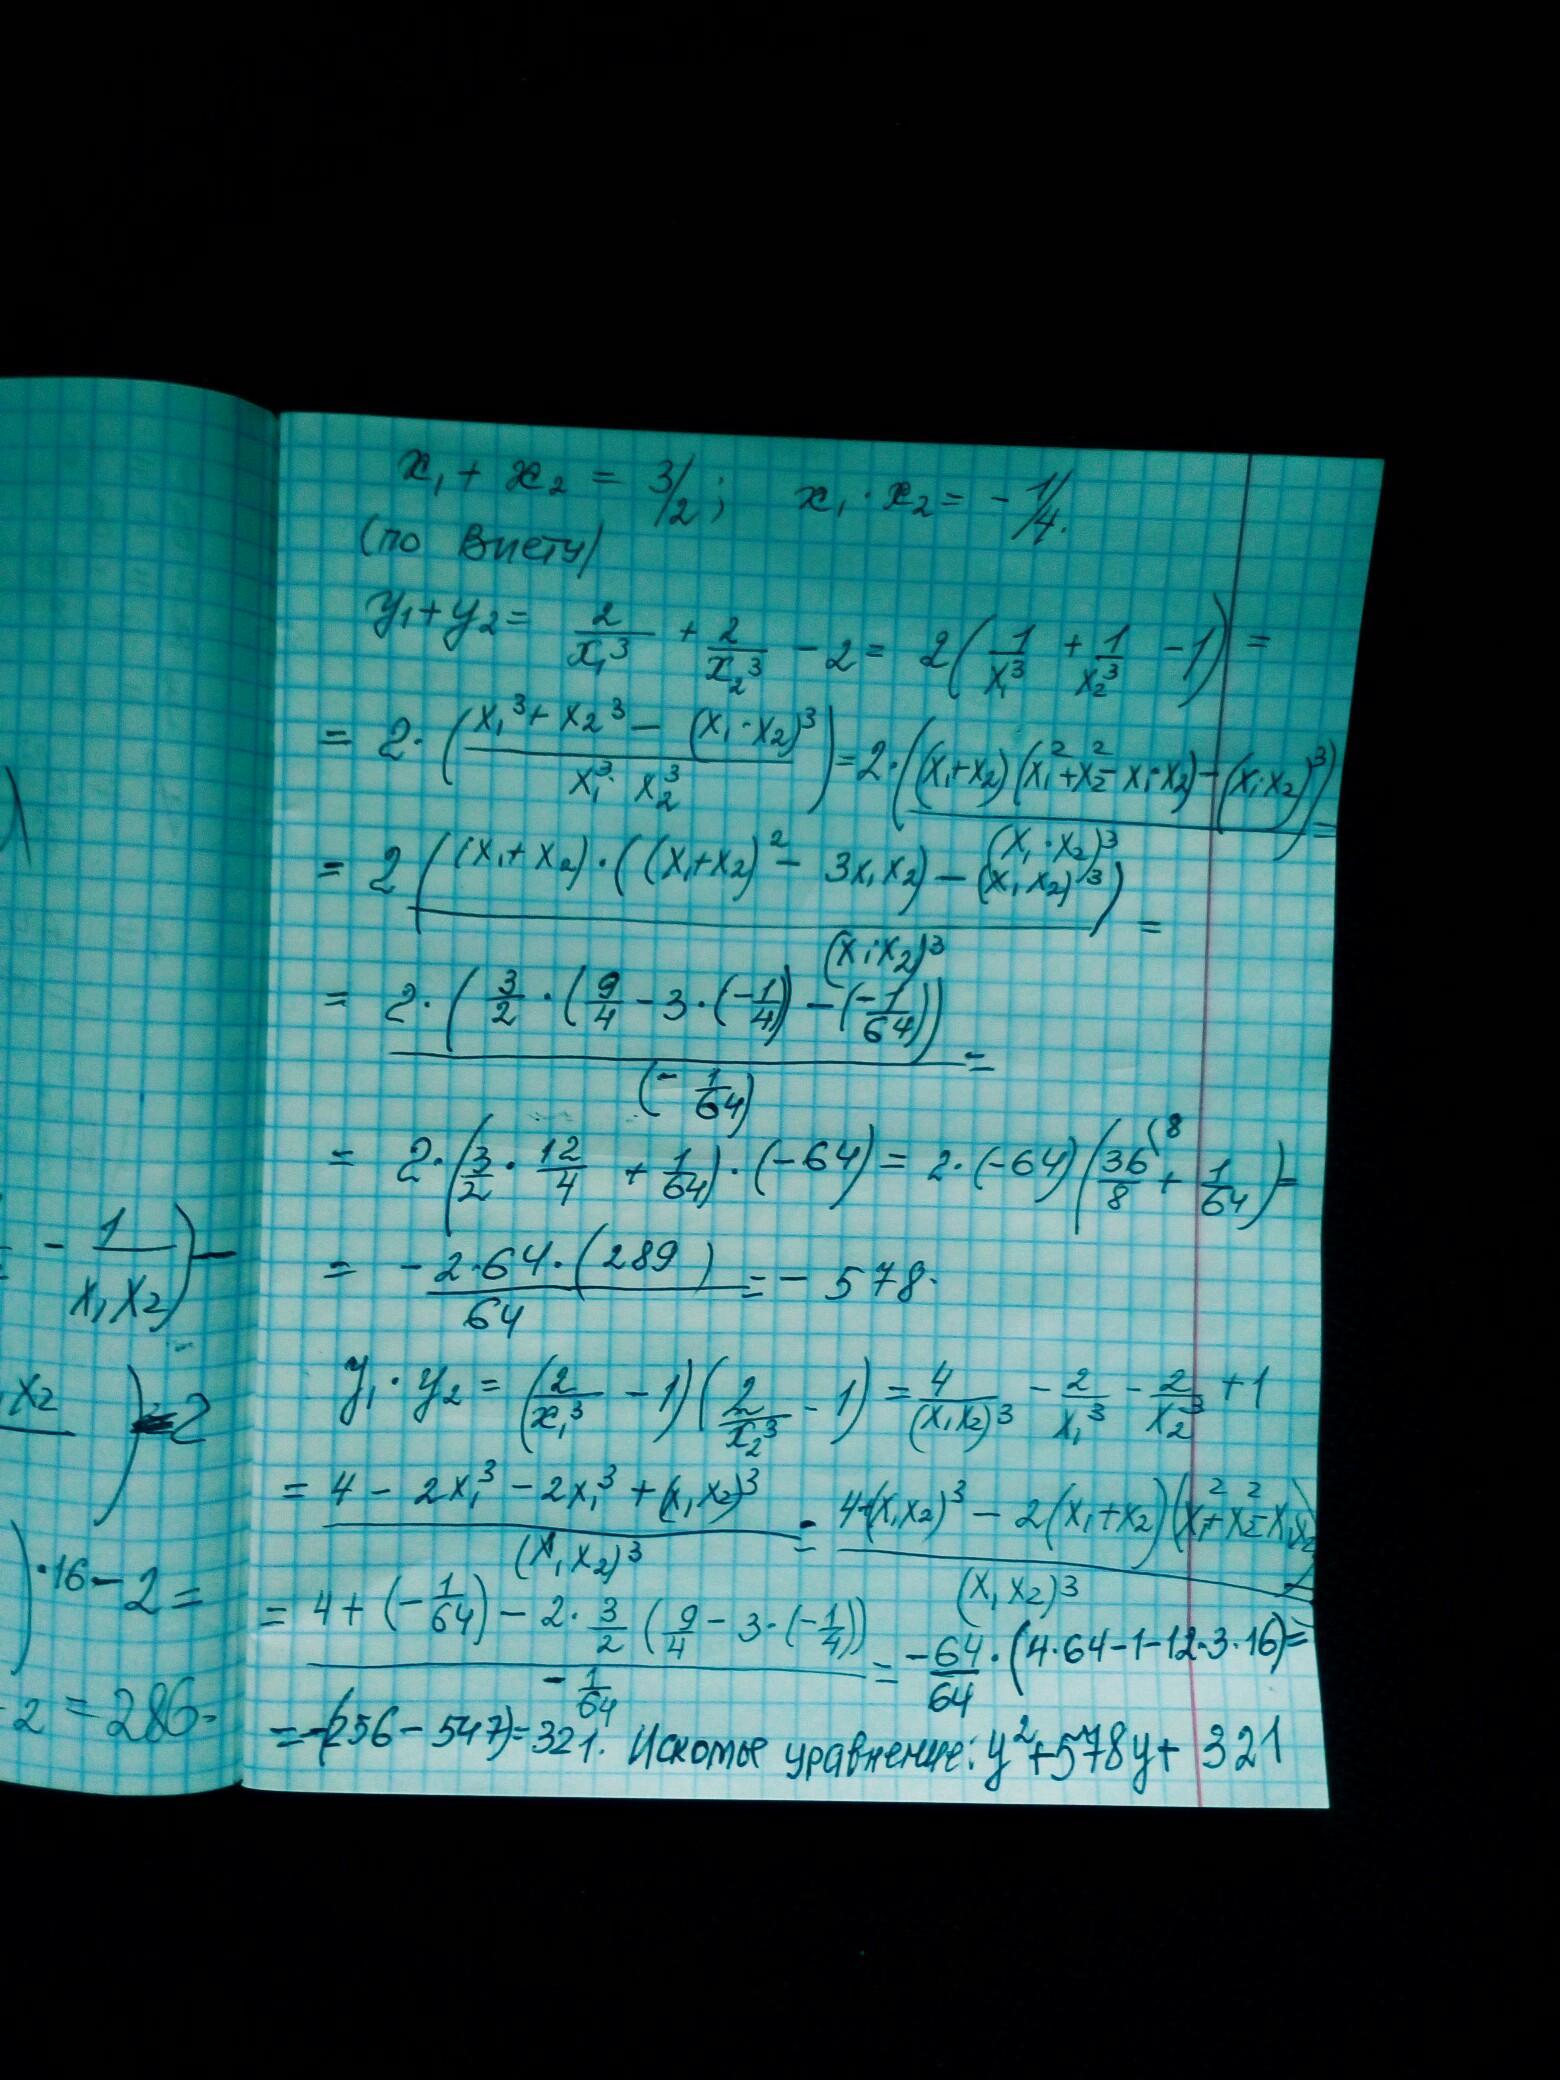 x₁ + x₂ = 3/2; x₁ · x₂ = - 1/4.
(по Виету)
y₁+y₂= 2/x₁³ + 2/x₂³ - 2 = 2(1/x₁³ + 1/x₂³ - 1) =
= 2·((x₁³+x₂³ - (x₁·x₂)³)/(x₁³·x₂³)) = 2·(((x₁+x₂)(x₁²+x₂²-x₁·x₂)-(x₁x₂)³)/(x₁·x₂)³) =
= 2((x₁+x₂)·((x₁+x₂)² - 3x₁x₂) - (x₁x₂)³)/(x₁x₂)³ =
= 2·(3/2·(9/4 - 3·(-1/4)) - (-1/64))/(- 1/64) =
= 2·(3/2 · 12/4 + 1/64)·(-64) = 2·(-64)(36/8 \8 + 1/64) =
= - 2·64·(289)/64 = - 578.
y₁·y₂ = (2/x₁³ - 1)(2/x₂³ - 1) = 4/(x₁x₂)³ - 2/x₁³ - 2/x₂³ + 1
= (4 - 2x₁³ - 2x₁³ + (x₁x₂)³)/(x₁x₂)³ = (4+(x₁x₂)³ - 2(x₁+x₂)(x₁²+x₂²-x₁x₂))/(x₁x₂)³ =
= (4 + (-1/64) - 2·3/2(9/4 - 3·(-1/4)))/(-1/64) = -64/64·(4·64-1-12·3·16)=
= -(256 - 547) = 321. Искомое уравнение: y²+578y+ 321
- 1/(x₁x₂)) -
x₂ ) 2
)·16 - 2 =
2 = 286